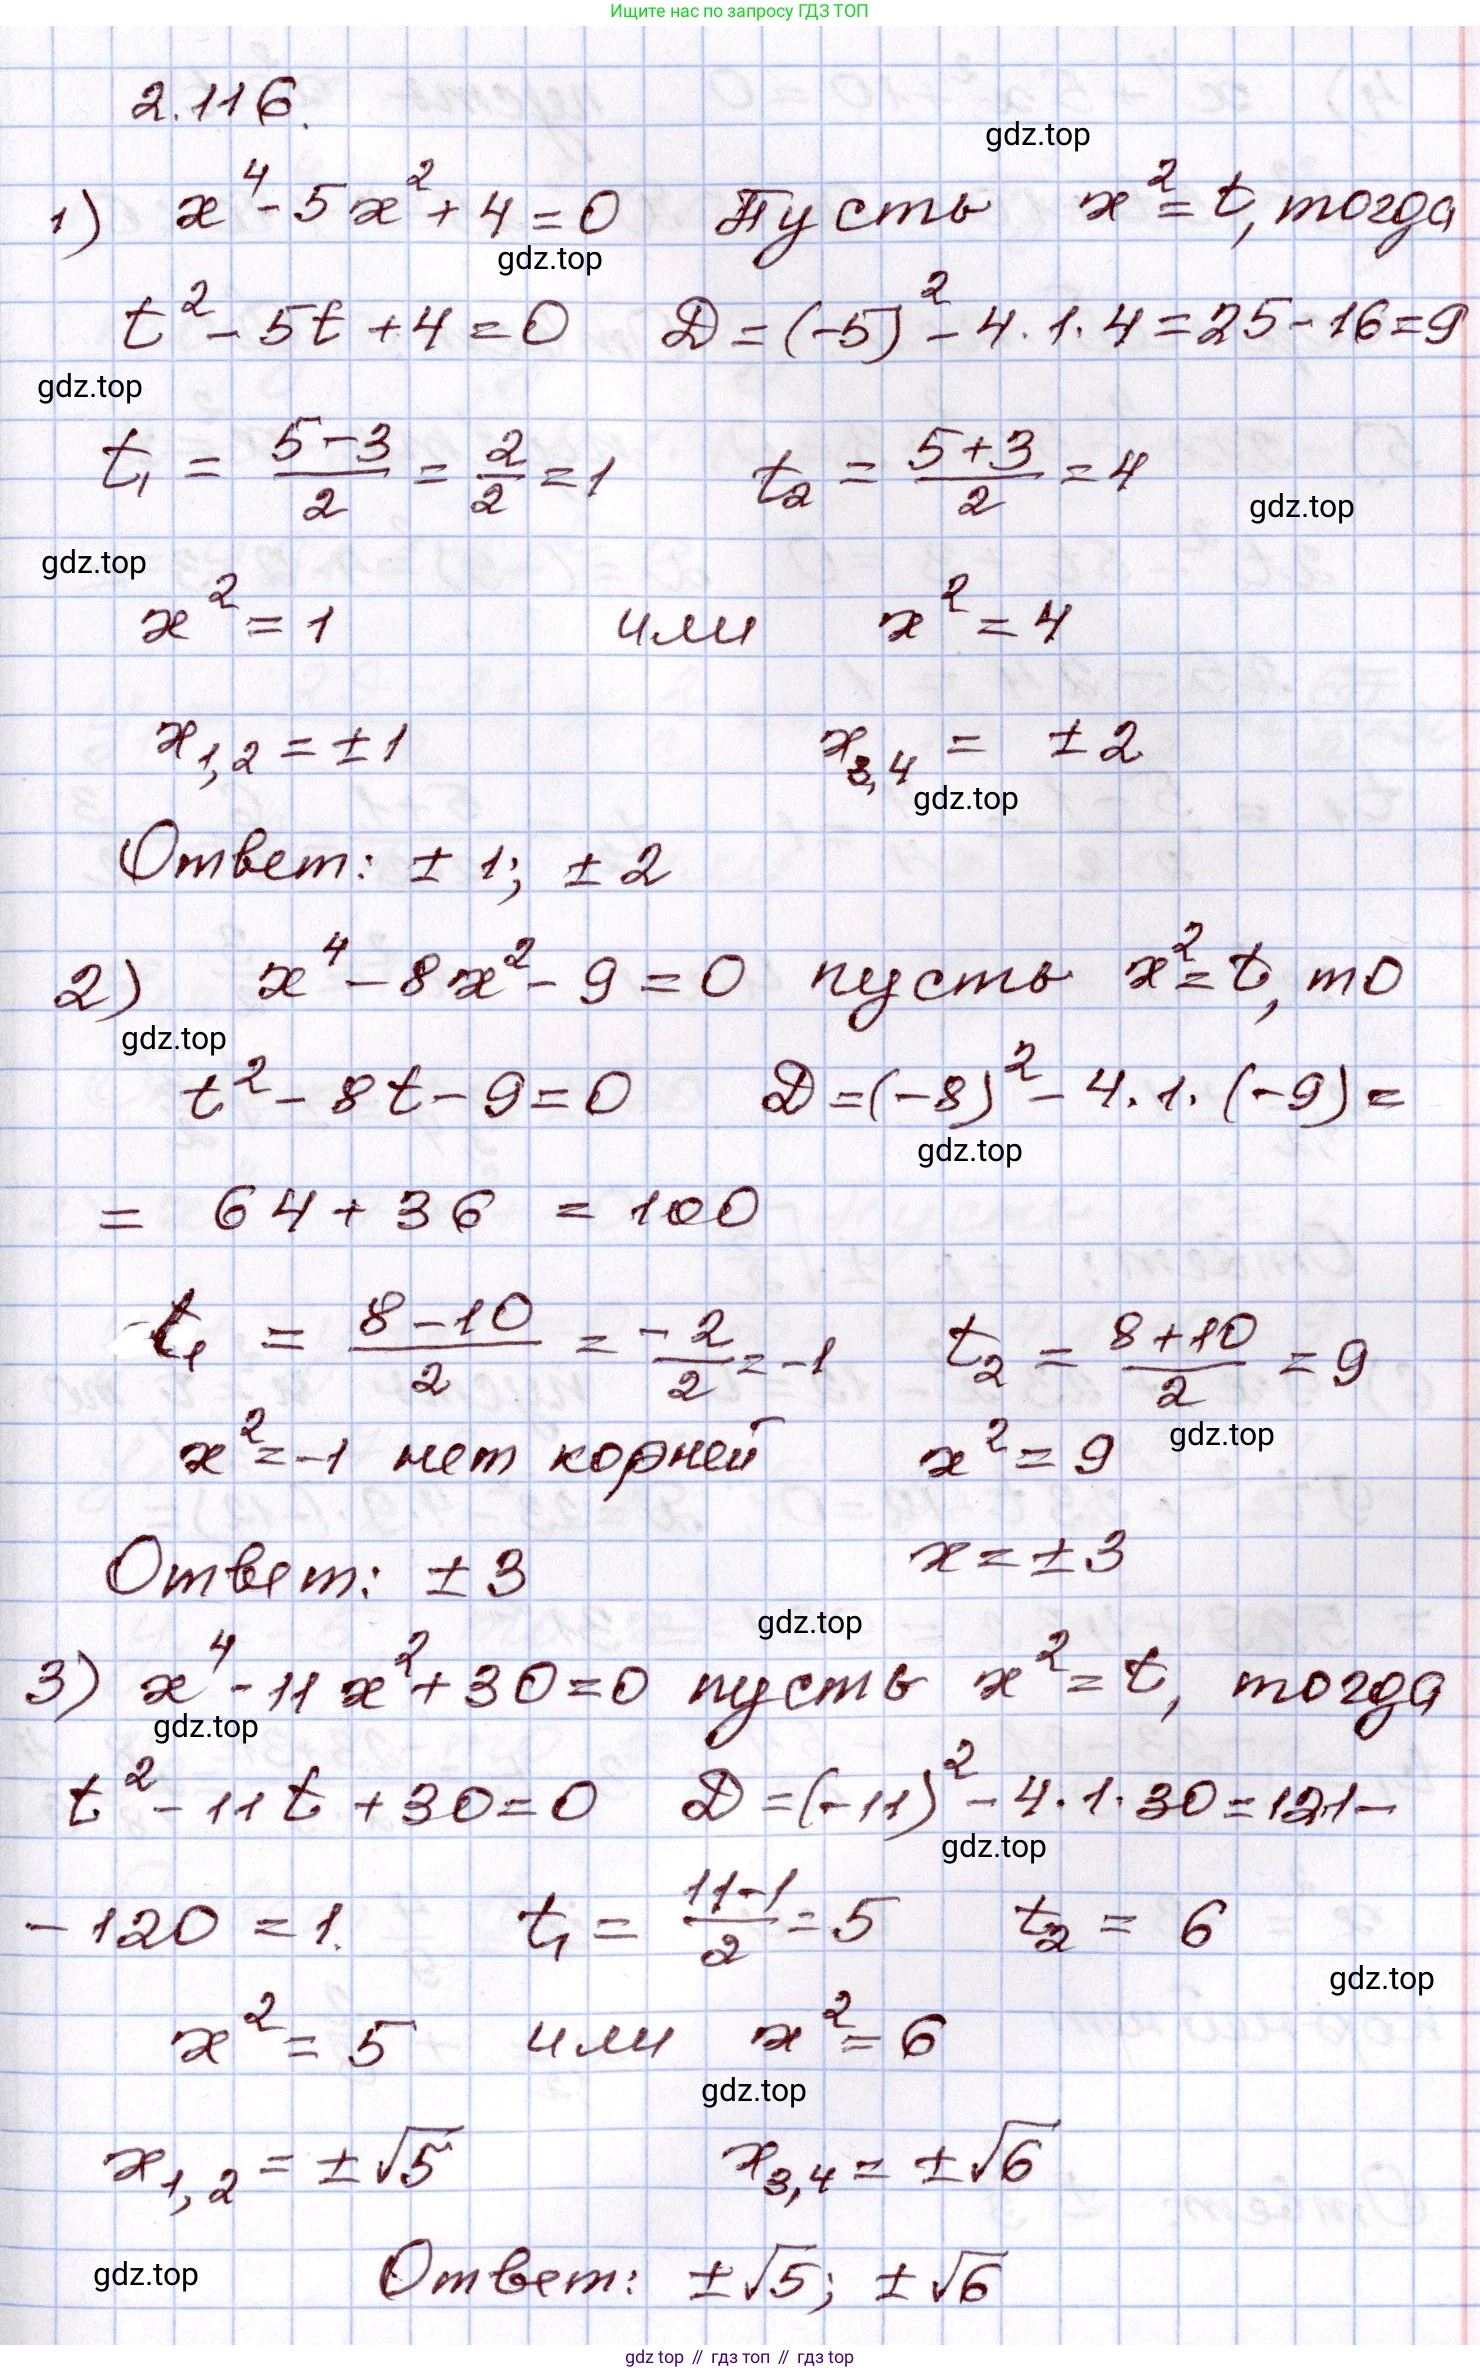 Ищите нас по запросу ГДЗ ТОП
2.116.
gdz.top
1) x⁴ - 5x² + 4 = 0 Пусть x² = t, тогда
gdz.top
t² - 5t + 4 = 0 D = (-5)² - 4·1·4 = 25 - 16 = 9
gdz.top
t₁ = (5-3)/2 = 2/2 = 1 t₂ = (5+3)/2 = 4
gdz.top
gdz.top
x² = 1 или x² = 4
x₁,₂ = ±1 x₃,₄ = ±2
gdz.top
Ответ: ±1; ±2
2) x⁴ - 8x² - 9 = 0 пусть x² = t, то
gdz.top
t² - 8t - 9 = 0 D = (-8)² - 4·1·(-9) =
gdz.top
= 64 + 36 = 100
t₁ = (8-10)/2 = -2/2 = -1 t₂ = (8+10)/2 = 9
gdz.top
x² = -1 нет корней x² = 9
Ответ: ±3 x = ±3
gdz.top
3) x⁴ - 11x² + 30 = 0 пусть x² = t, тогда
gdz.top
t² - 11t + 30 = 0 D = (-11)² - 4·1·30 = 121 -
gdz.top
- 120 = 1. t₁ = (11-1)/2 = 5 t₂ = 6
gdz.top
x² = 5 или x² = 6
gdz.top
x₁,₂ = ±√5 x₃,₄ = ±√6
gdz.top
Ответ: ±√5; ±√6
gdz top // гдз топ // гдз top